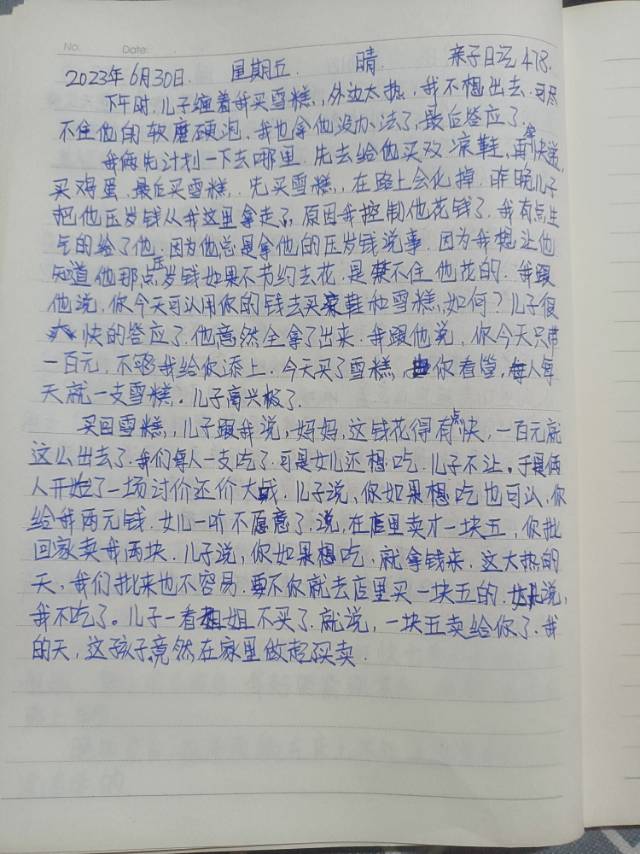 No: Date:
2023年6月30日. 星期五. 晴 亲子日记478.
下午时.儿子缠着我买雪糕,外边太热,我不想出去.可尽
不住他的软磨硬泡.我也拿他没办法了,最后答应了.
我俩先计划一下去哪里.先去给他买双凉鞋,再拿快递,
买鸡蛋.最后买雪糕.先买雪糕,在路上会化掉.昨晚儿子
把他压岁钱从我这里拿走了,原因我控制他花钱了.我有点生
气的给了他.因为他总是拿他的压岁钱说事.因为我想让他
知道他那点压岁钱如果不节约去花.是禁不住他花的.我跟
他说,你今天可以用你的钱去买凉鞋和雪糕,如何?儿子很
快的答应了.他竟然全拿了出来.我跟他说,你今天只带
一百元,不够我给你添上.今天买了雪糕,由你看管,每人每
天就一支雪糕.儿子高兴极了.
买回雪糕,儿子跟我说,妈妈,这钱花得有点快,一百元就
这么出去了.我们每人一支吃了.可是女儿还想吃.儿子不让.于是俩
人开始了一场讨价还价大战.儿子说,你如果想吃也可以,你
给我两元钱.女儿一听不愿意了.说,在店里卖才一块五,你批
回家卖我两块.儿子说,你如果想吃,就拿钱来.这大热的
天,我们批来也不容易.要不你就去店里买一块五的.女儿说,
我不吃了。儿子一看姐姐不买了.就说,一块五卖给你了.我
的天,这孩子竟然在家里做起买卖.